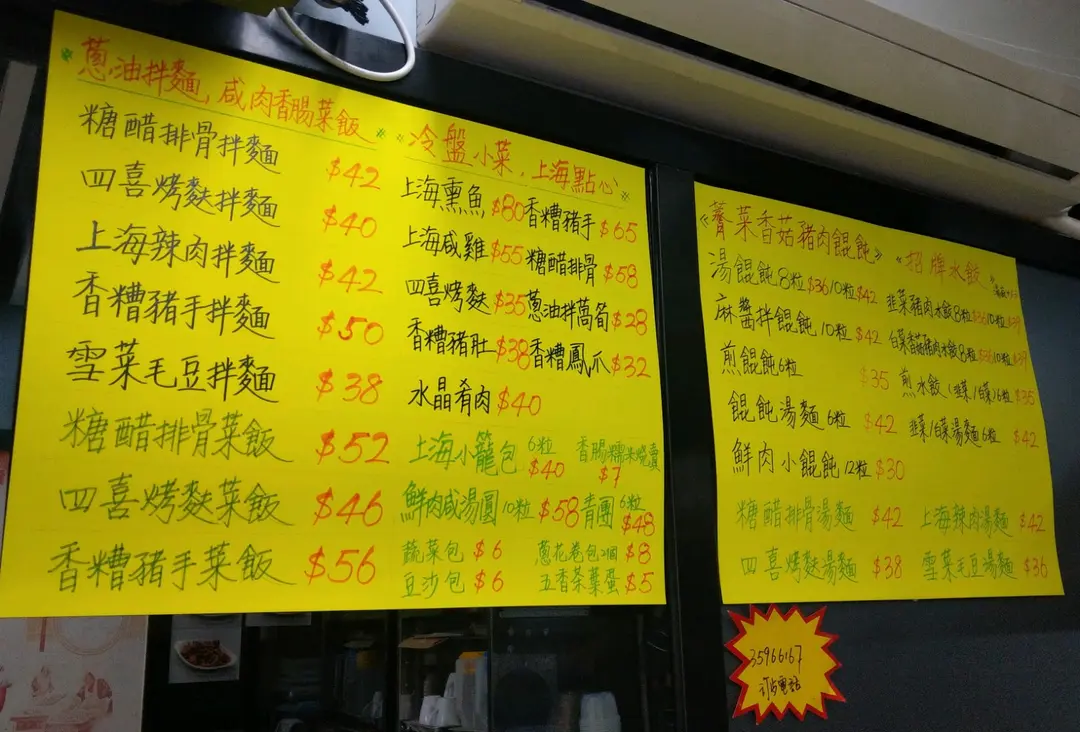 蔥油拌麵,咸肉香腸菜飯
糖醋排骨拌麵 $42
四喜烤麩拌麵 $40
上海辣肉拌麵 $42
香糟豬手拌麵 $50
雪菜毛豆拌麵 $38
糖醋排骨菜飯 $52
四喜烤麩菜飯 $46
香糟豬手菜飯 $56
《冷盤小菜,上海點心》
上海熏魚 $80 香糟豬手 $65
上海咸雞 $55 糖醋排骨 $58
四喜烤麩 $35 蔥油拌萵筍 $28
香糟豬肚 $38 香糟鳳爪 $32
水晶肴肉 $40
上海小籠包 6粒 $40 香腸糯米燒賣 $7
鮮肉咸湯圓 10粒 $58 青團 6粒 $48
蔬菜包 $6 蔥花卷包2個 $8
豆沙包 $6 五香茶葉蛋 $5
《薺菜香菇豬肉餛飩》
湯餛飩 8粒$36/10粒$42
麻醬拌餛飩 10粒 $42
煎餛飩 6粒 $35
餛飩湯麵 6粒 $42
鮮肉小餛飩 12粒 $30
《招牌水餃》
韭菜豬肉水餃8粒$36/10粒$39
白菜香菇豬肉水餃8粒$36/10粒$39
煎水餃(韭菜/白菜)6粒 $35
韭菜/白菜湯麵 6粒 $42
糖醋排骨湯麵 $42 上海辣肉湯麵 $42
四喜烤麩湯麵 $38 雪菜毛豆湯麵 $36
35966167
電話